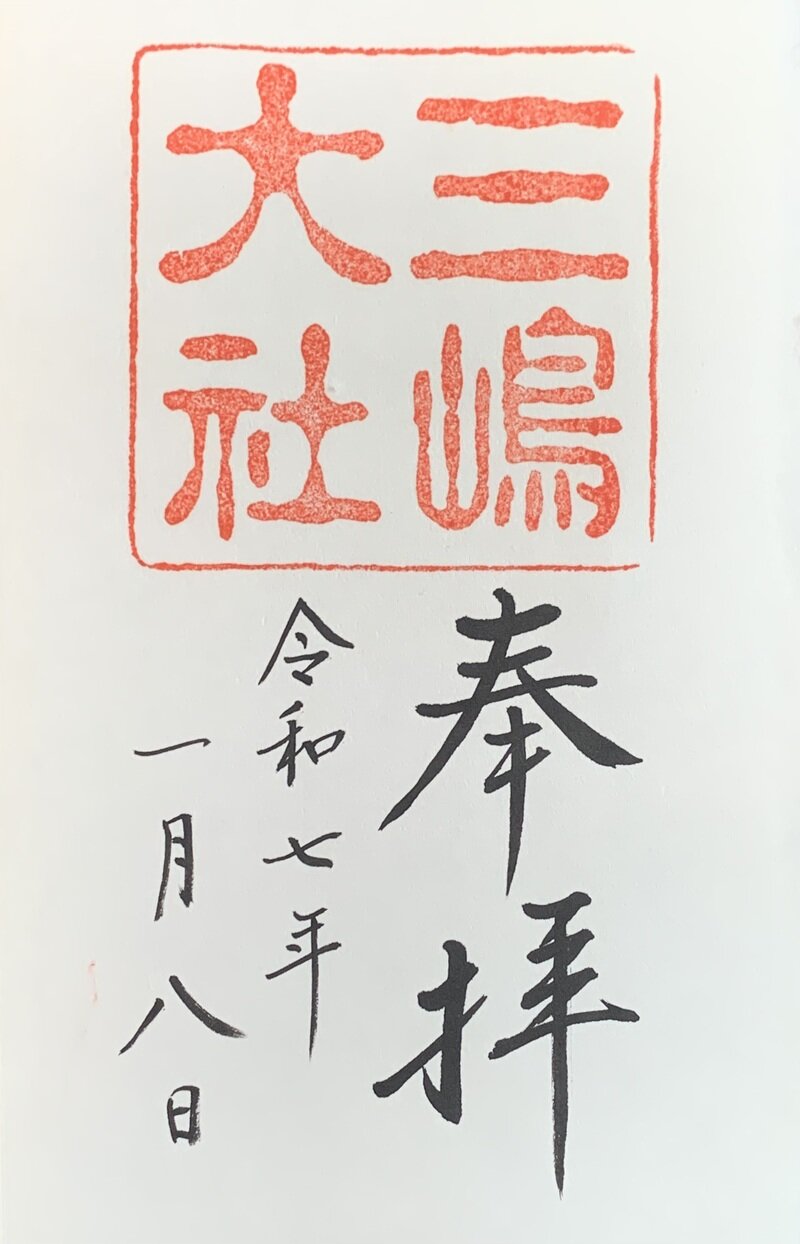 三嶋
大社
奉拝
令和七年
一月八日